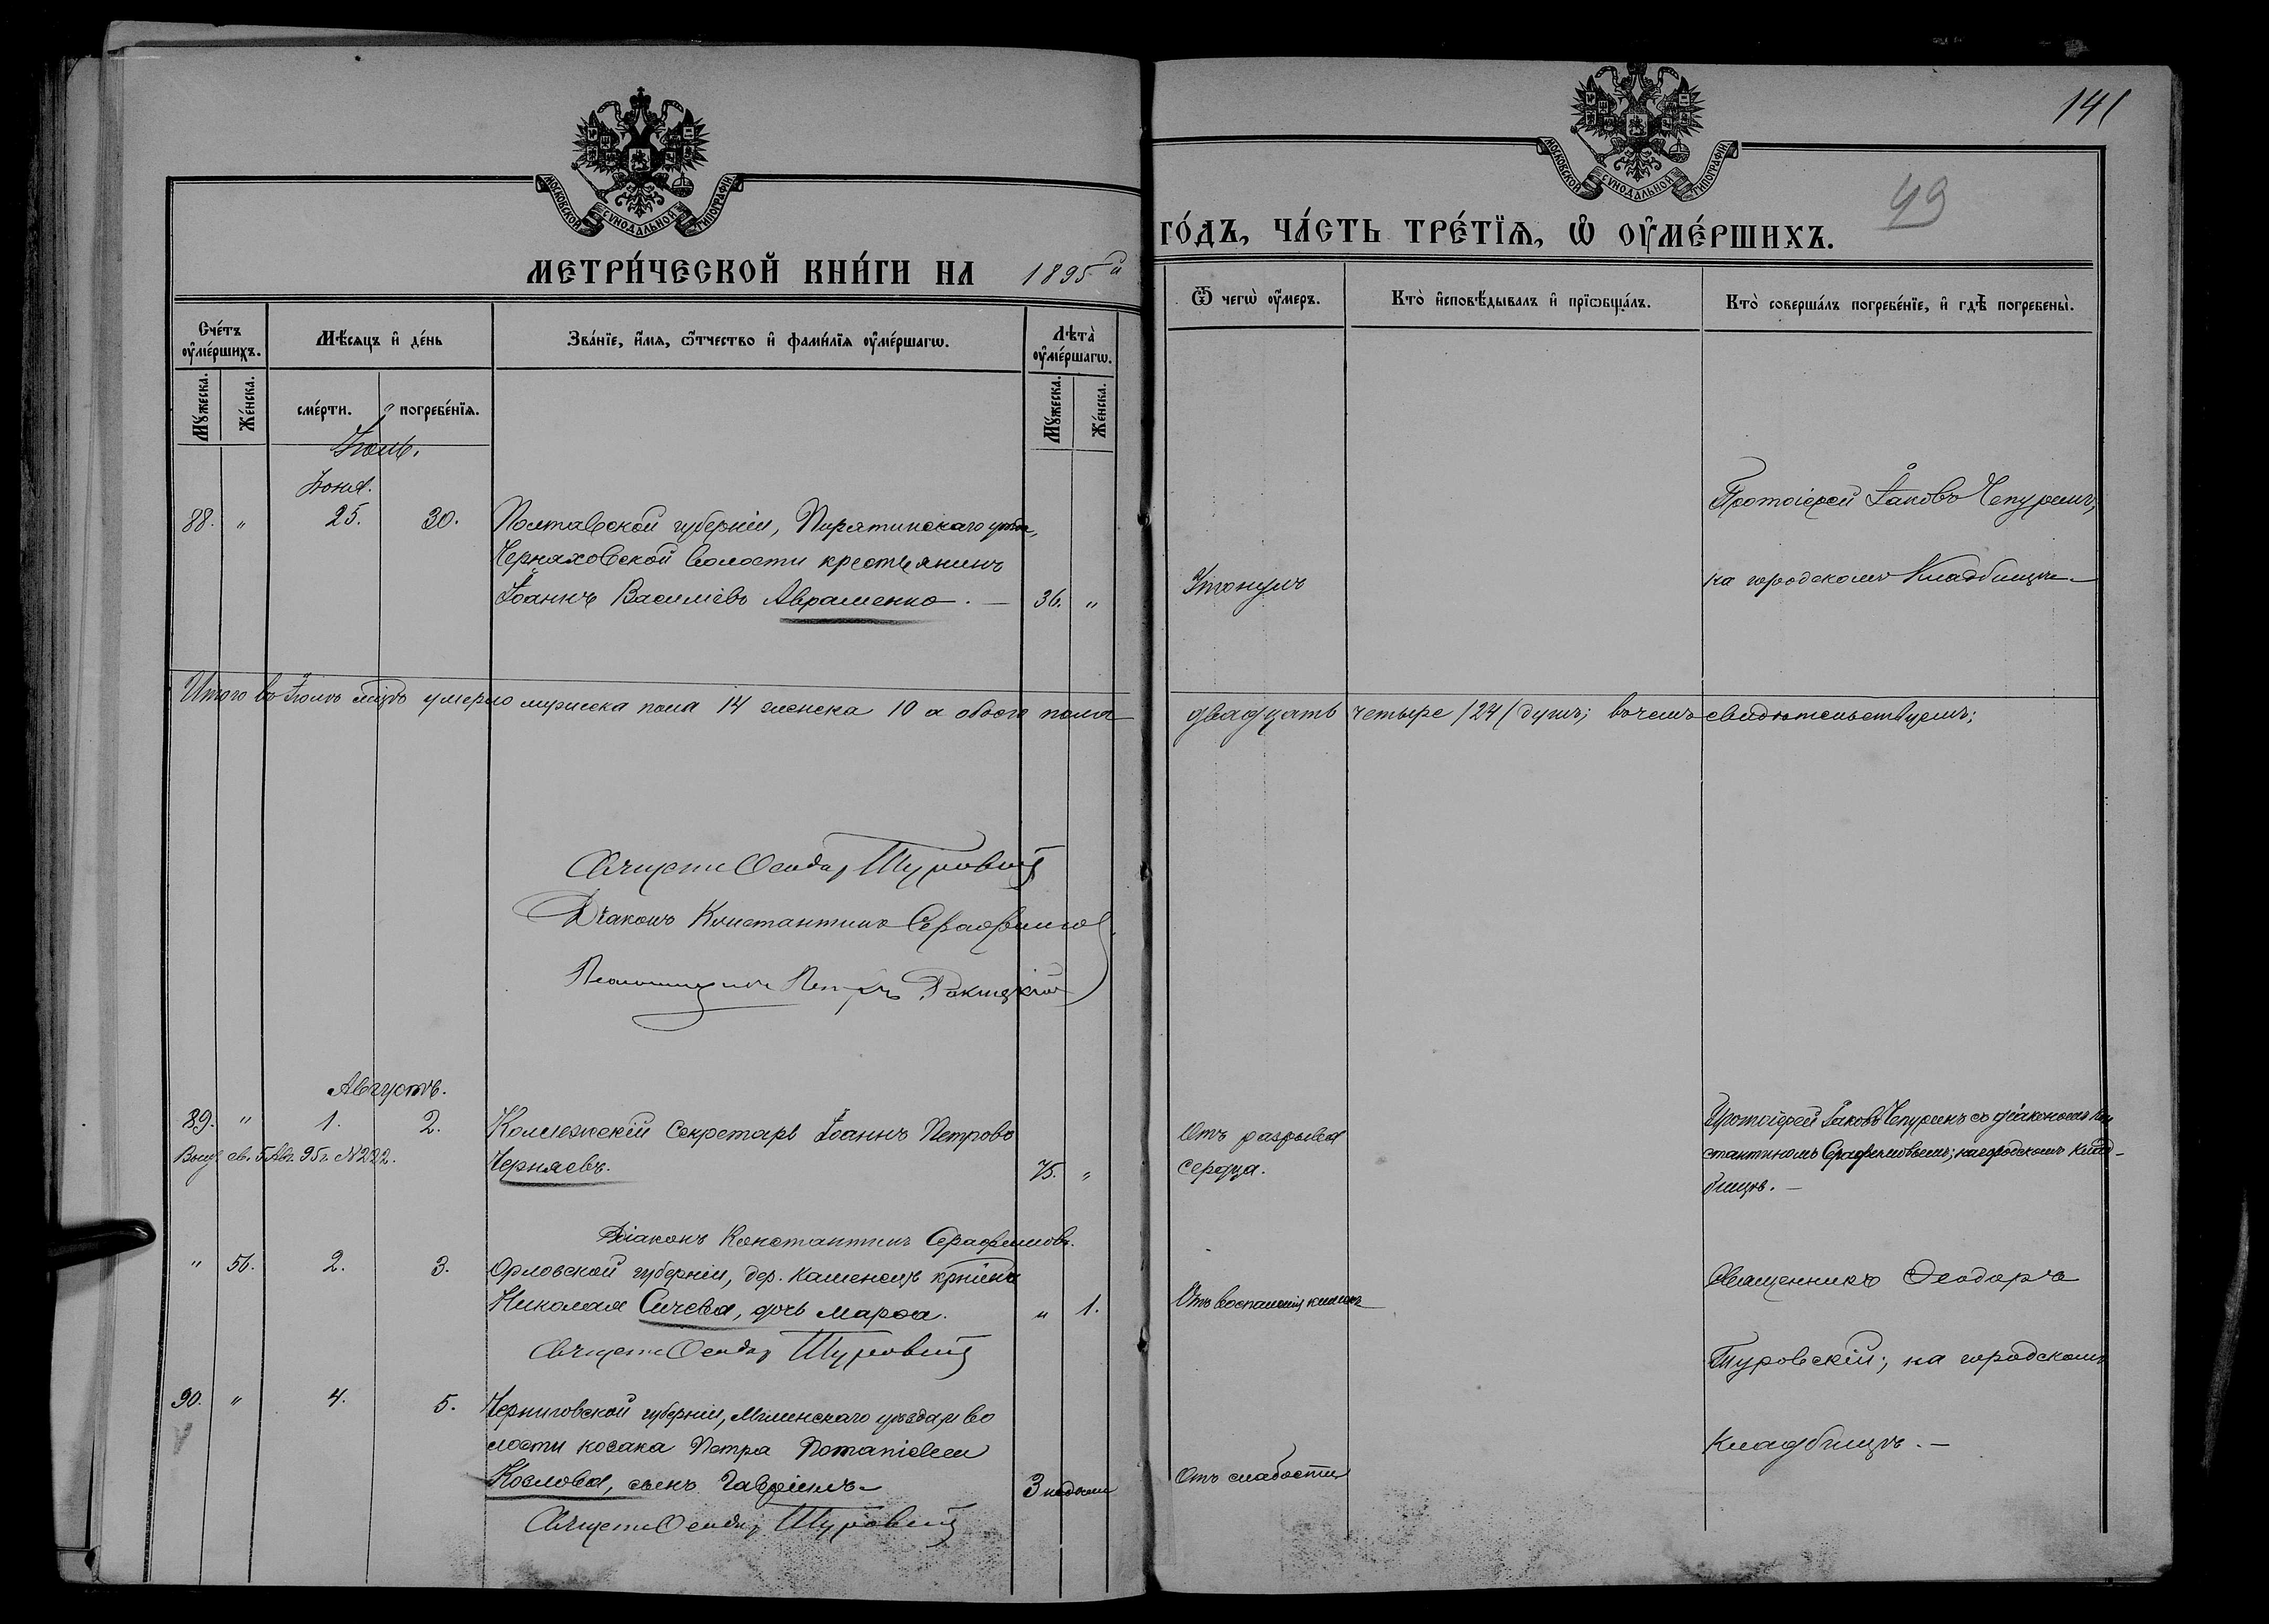 141
49
МОСКОВСКОЙ СУНОДАЛЬНОЙ ТИПОГРАФІИ
МОСКОВСКОЙ СУНОДАЛЬНОЙ ТИПОГРАФІИ
МЕТРИ́ЧЕСКОЙ КНИ́ГИ НА 1895й ГО́ДЪ, ЧА́СТЬ ТРЕ́ТЇѦ, Ѡ҆ ОУ҆МЕ́РШИХЪ.
Сче́тъ оу҆ме́ршихъ.
Мꙋ́жеска.
Же́нска.
Мѣ́сѧцъ и҆ де́нь
сме́рти.
погребе́нїѧ.
Зва́нїе, и҆́мѧ, ѻ҆́тчество и҆ фами́лїѧ оу҆ме́ршагѡ.
Лѣта̀ оу҆ме́ршагѡ.
Мꙋ́жеска.
Же́нска.
Ѿ чегѡ̀ оу҆́меръ.
Кто̀ и҆сповѣ́дывалъ и҆ прїѡбща́лъ.
Кто̀ соверша́лъ погребе́нїе, и҆ гдѣ̀ погребены̀.
Іюль.
Іюня.
88. " 25. 30. Полтавской губерніи, Пирятинскаго уѣз.,
Черняховской волости крестьянинъ
Іоаннъ Василіевъ Авраменко. — 36. "
Утонулъ
Протоіерей Іаковъ Чепуринъ,
на городскомъ кладбищѣ —
Итого въ Іюлѣ мцѣ умерло мужеска пола 14 женска 10 а обоего пола двадцать четыре /24/ душъ; въ чемъ свидѣтельствуемъ;
Священ. Ѳеодоръ Туровскій
Діаконъ Константинъ Серафимовъ
Псаломщикъ Петръ Ракицкій
Августъ.
89. " 1. 2. Коллежскій Секретарь Іоаннъ Петровъ
св. 5 Авг. 95 г. №222.
Черняевъ. 75. "
Отъ разрыва
сердца.
Протоіерей Іаковъ Чепуринъ съ діакономъ Кон
стантиномъ Серафимовымъ; на городскомъ клад-
бищѣ. —
Діаконъ Константинъ Серафимовъ.
" 56. 2. 3. Орловской губерніи, дер. Каменецъ крѣнна
Николая Сичева, дочь Марѳа. " 1.
Отъ воспаленія кишекъ
Священникъ Ѳеодоръ
Туровскій; на городскомъ
кладбищѣ. —
Священ. Ѳеодоръ Туровскій
90. " 4. 5. Черниговской губерніи, Мглинскаго уѣзда, и во
лости козака Петра Потаніева
Козлова, сынъ Гавріилъ — 3 недѣли
Отъ слабости
Священ. Ѳеодоръ Туровскій